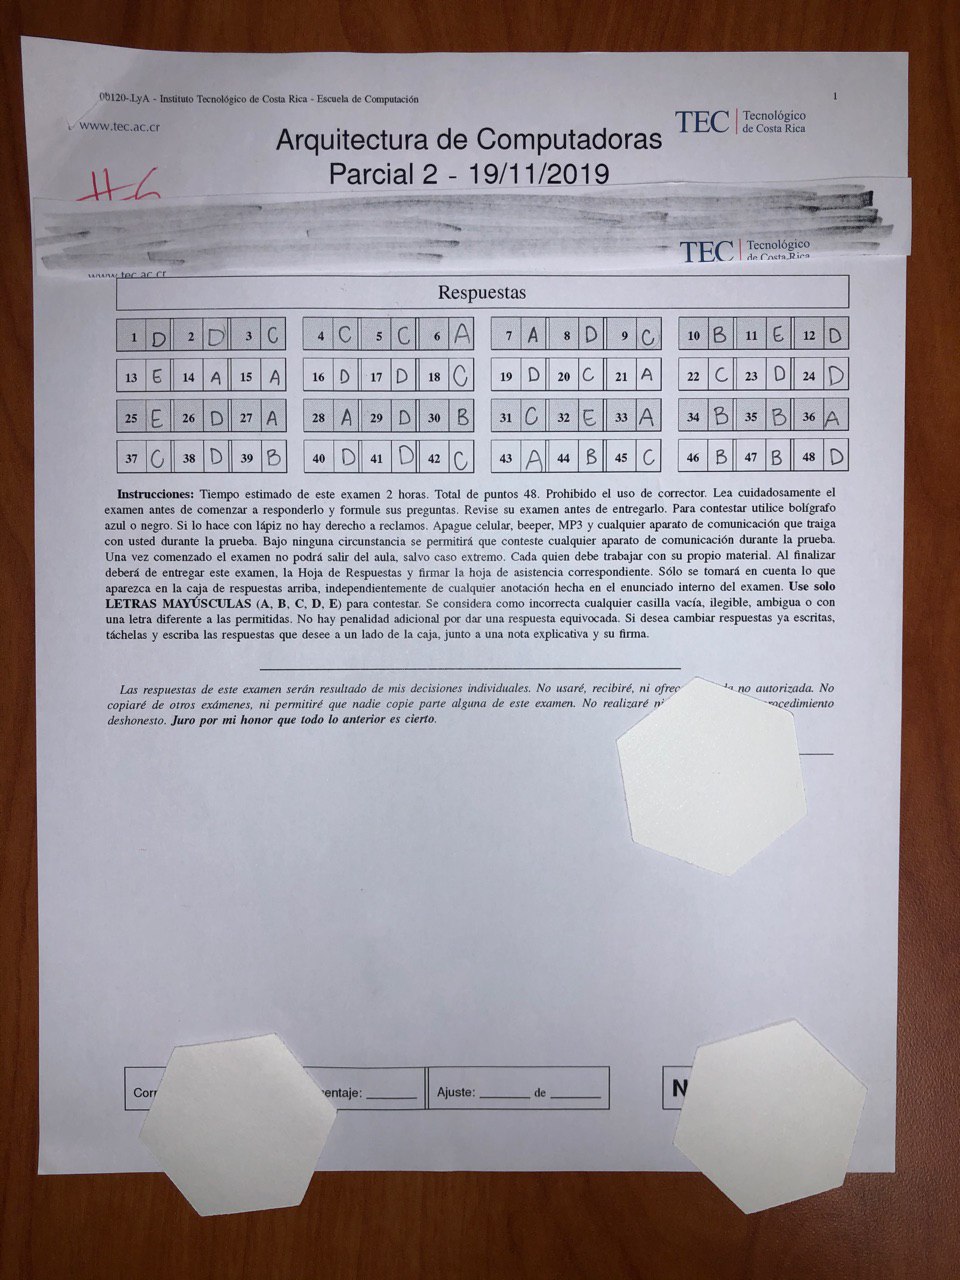 00120-LyA - Instituto Tecnológico de Costa Rica - Escuela de Computación
1
www.tec.ac.cr
TEC | Tecnológico
de Costa Rica
Arquitectura de Computadoras
Parcial 2 - 19/11/2019
#6
TEC | Tecnológico
de Costa Rica
www.tec.ac.cr
Respuestas
1 D 2 D 3 C 4 C 5 C 6 A 7 A 8 D 9 C 10 B 11 E 12 D
13 E 14 A 15 A 16 D 17 D 18 C 19 D 20 C 21 A 22 C 23 D 24 D
25 E 26 D 27 A 28 A 29 D 30 B 31 C 32 E 33 A 34 B 35 B 36 A
37 C 38 D 39 B 40 D 41 D 42 C 43 A 44 B 45 C 46 B 47 B 48 D
Instrucciones: Tiempo estimado de este examen 2 horas. Total de puntos 48. Prohibido el uso de corrector. Lea cuidadosamente el
examen antes de comenzar a responderlo y formule sus preguntas. Revise su examen antes de entregarlo. Para contestar utilice bolígrafo
azul o negro. Si lo hace con lápiz no hay derecho a reclamos. Apague celular, beeper, MP3 y cualquier aparato de comunicación que traiga
con usted durante la prueba. Bajo ninguna circunstancia se permitirá que conteste cualquier aparato de comunicación durante la prueba.
Una vez comenzado el examen no podrá salir del aula, salvo caso extremo. Cada quien debe trabajar con su propio material. Al finalizar
deberá de entregar este examen, la Hoja de Respuestas y firmar la hoja de asistencia correspondiente. Sólo se tomará en cuenta lo que
aparezca en la caja de respuestas arriba, independientemente de cualquier anotación hecha en el enunciado interno del examen. Use solo
LETRAS MAYÚSCULAS (A, B, C, D, E) para contestar. Se considera como incorrecta cualquier casilla vacía, ilegible, ambigua o con
una letra diferente a las permitidas. No hay penalidad adicional por dar una respuesta equivocada. Si desea cambiar respuestas ya escritas,
táchelas y escriba las respuestas que desee a un lado de la caja, junto a una nota explicativa y su firma.
Las respuestas de este examen serán resultado de mis decisiones individuales. No usaré, recibiré, ni no autorizada. No
copiaré de otros exámenes, ni permitiré que nadie copie parte alguna de este examen. No realizaré
deshonesto. Juro por mi honor que todo lo anterior es cierto.
Ajuste: ______ de ______